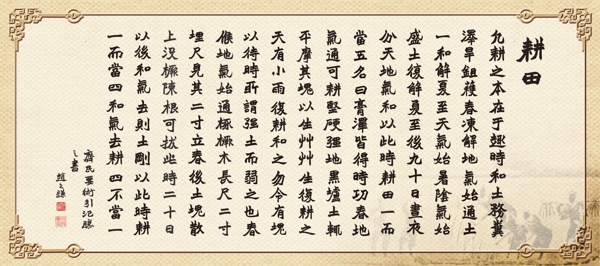 耕田
凡耕之本在于趣時和土務糞
澤早鉏穫春凍解地氣始通土
一和解夏至天氣始暑陰氣始
盛土復解夏至後九十日晝夜
分天地氣和以此時耕田一而
當五名曰膏澤皆得時功春地
氣通可耕堅硬强地黑壚土輒
平摩其塊以生艸艸生復耕之
天有小雨復耕和之勿令有塊
以待時所謂强土而弱之也春
候地氣始通椓橛木長尺二寸
埋尺見其二寸立春後土塊散
上没橛陳根可拔此時二十日
以後和氣去則土剛以此時耕
一而當四和氣去耕四不當一
齊民要術引氾勝
之書 趙之謙